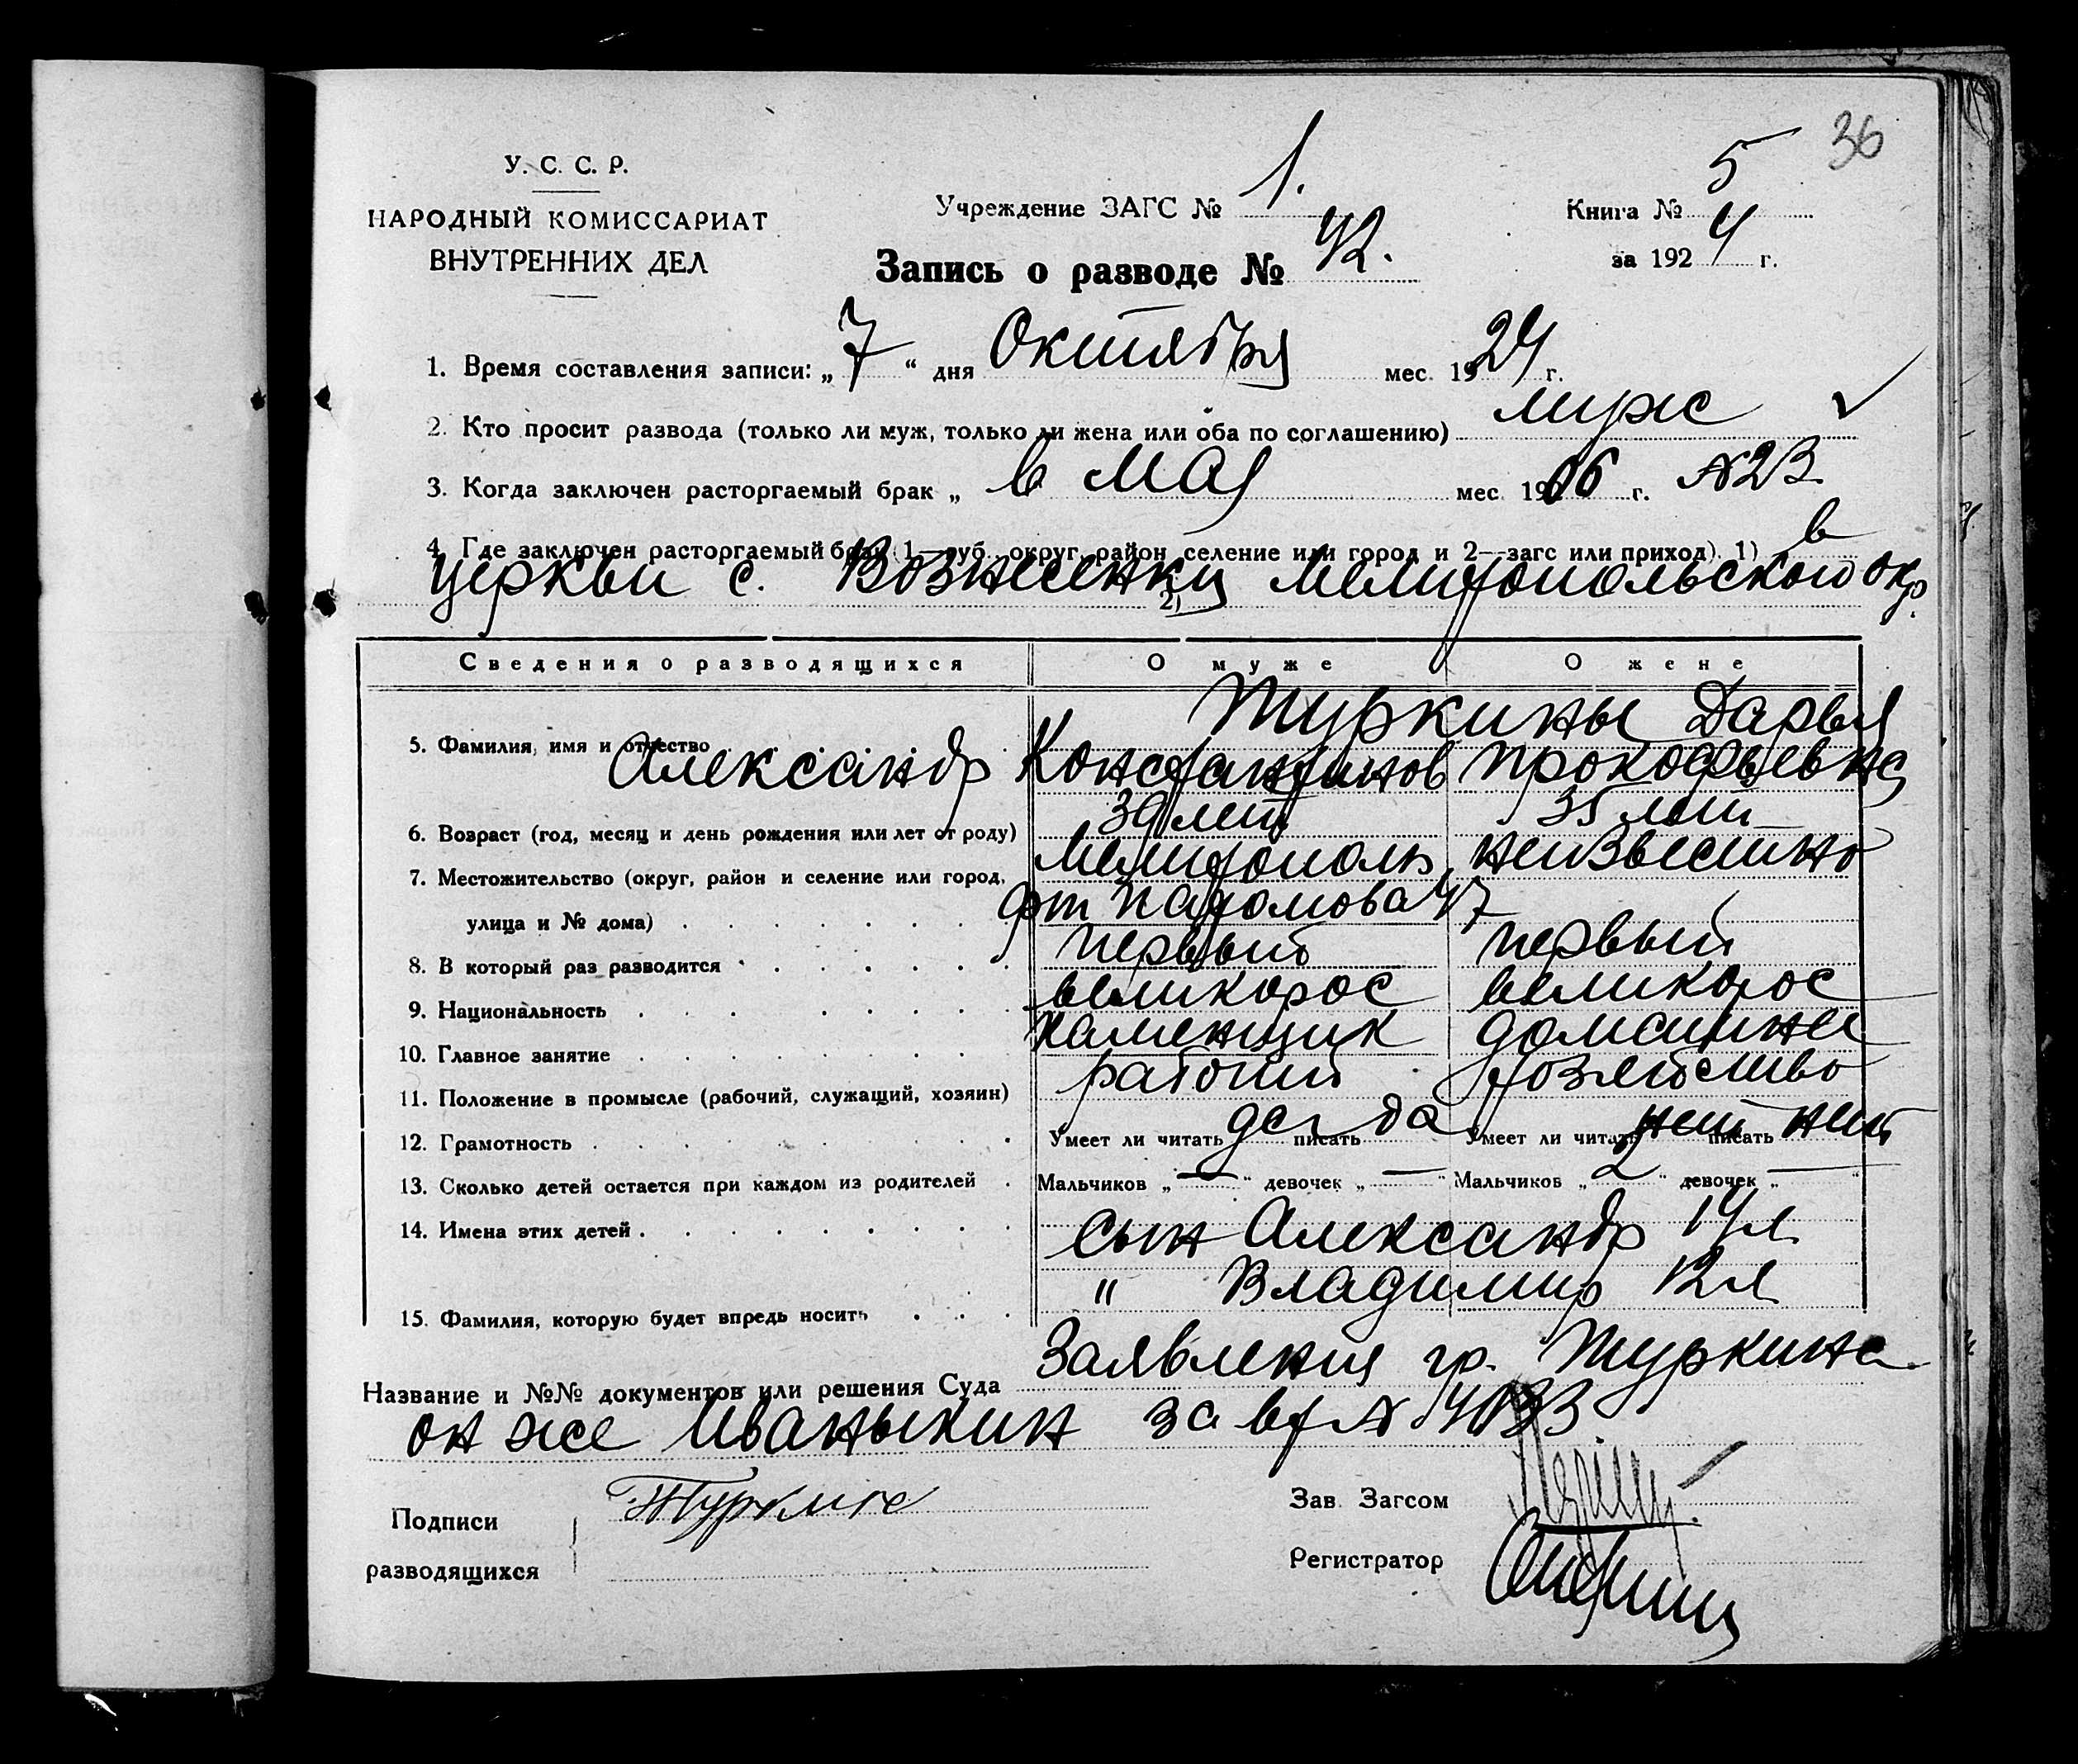 36
У. С. С. Р.
НАРОДНЫЙ КОМИССАРИАТ
ВНУТРЕННИХ ДЕЛ
Учреждение ЗАГС № 1.
Книга № 5
за 1924 г.
Запись о разводе № 42.
1. Время составления записи: „7“ дня Октября мес. 1924 г.
2. Кто просит развода (только ли муж, только ли жена или оба по соглашению) муж
3. Когда заключен расторгаемый брак „ в мая мес. 1906 г. №23
4. Где заключен расторгаемый брак (1—губ., округ, район, селение или город и 2—загс или приход). 1) в
церкви с. Вознесенки 2) Мелитопольской окр.
Сведения о разводящихся О муже О жене
Туркины Дарья
5. Фамилия, имя и отчество Александр Константинов Прокофьевна
6. Возраст (год, месяц и день рождения или лет от роду) 39 лет 35 лет
7. Местожительство (округ, район и селение или город, Мелитополь, неизвестно
улица и № дома) 47
8. В который раз разводится первый первый
9. Национальность великорос великорос
10. Главное занятие каменщик домашнее
11. Положение в промысле (рабочий, служащий, хозяин) рабочий хозяйство
12. Грамотность Умеет ли читать да писать да Умеет ли читать нет писать нет
13. Сколько детей остается при каждом из родителей Мальчиков „—“ девочек „—“ Мальчиков „2“ девочек „—“
14. Имена этих детей сын Александр 14 л.
" Владимир 12 л.
15. Фамилия, которую будет впредь носить
Название и №№ документов или решения Суда Заявления гр. Туркина
он же Иванькин за вх №
Подписи
разводящихся
Туркин
Зав. Загсом
Регистратор